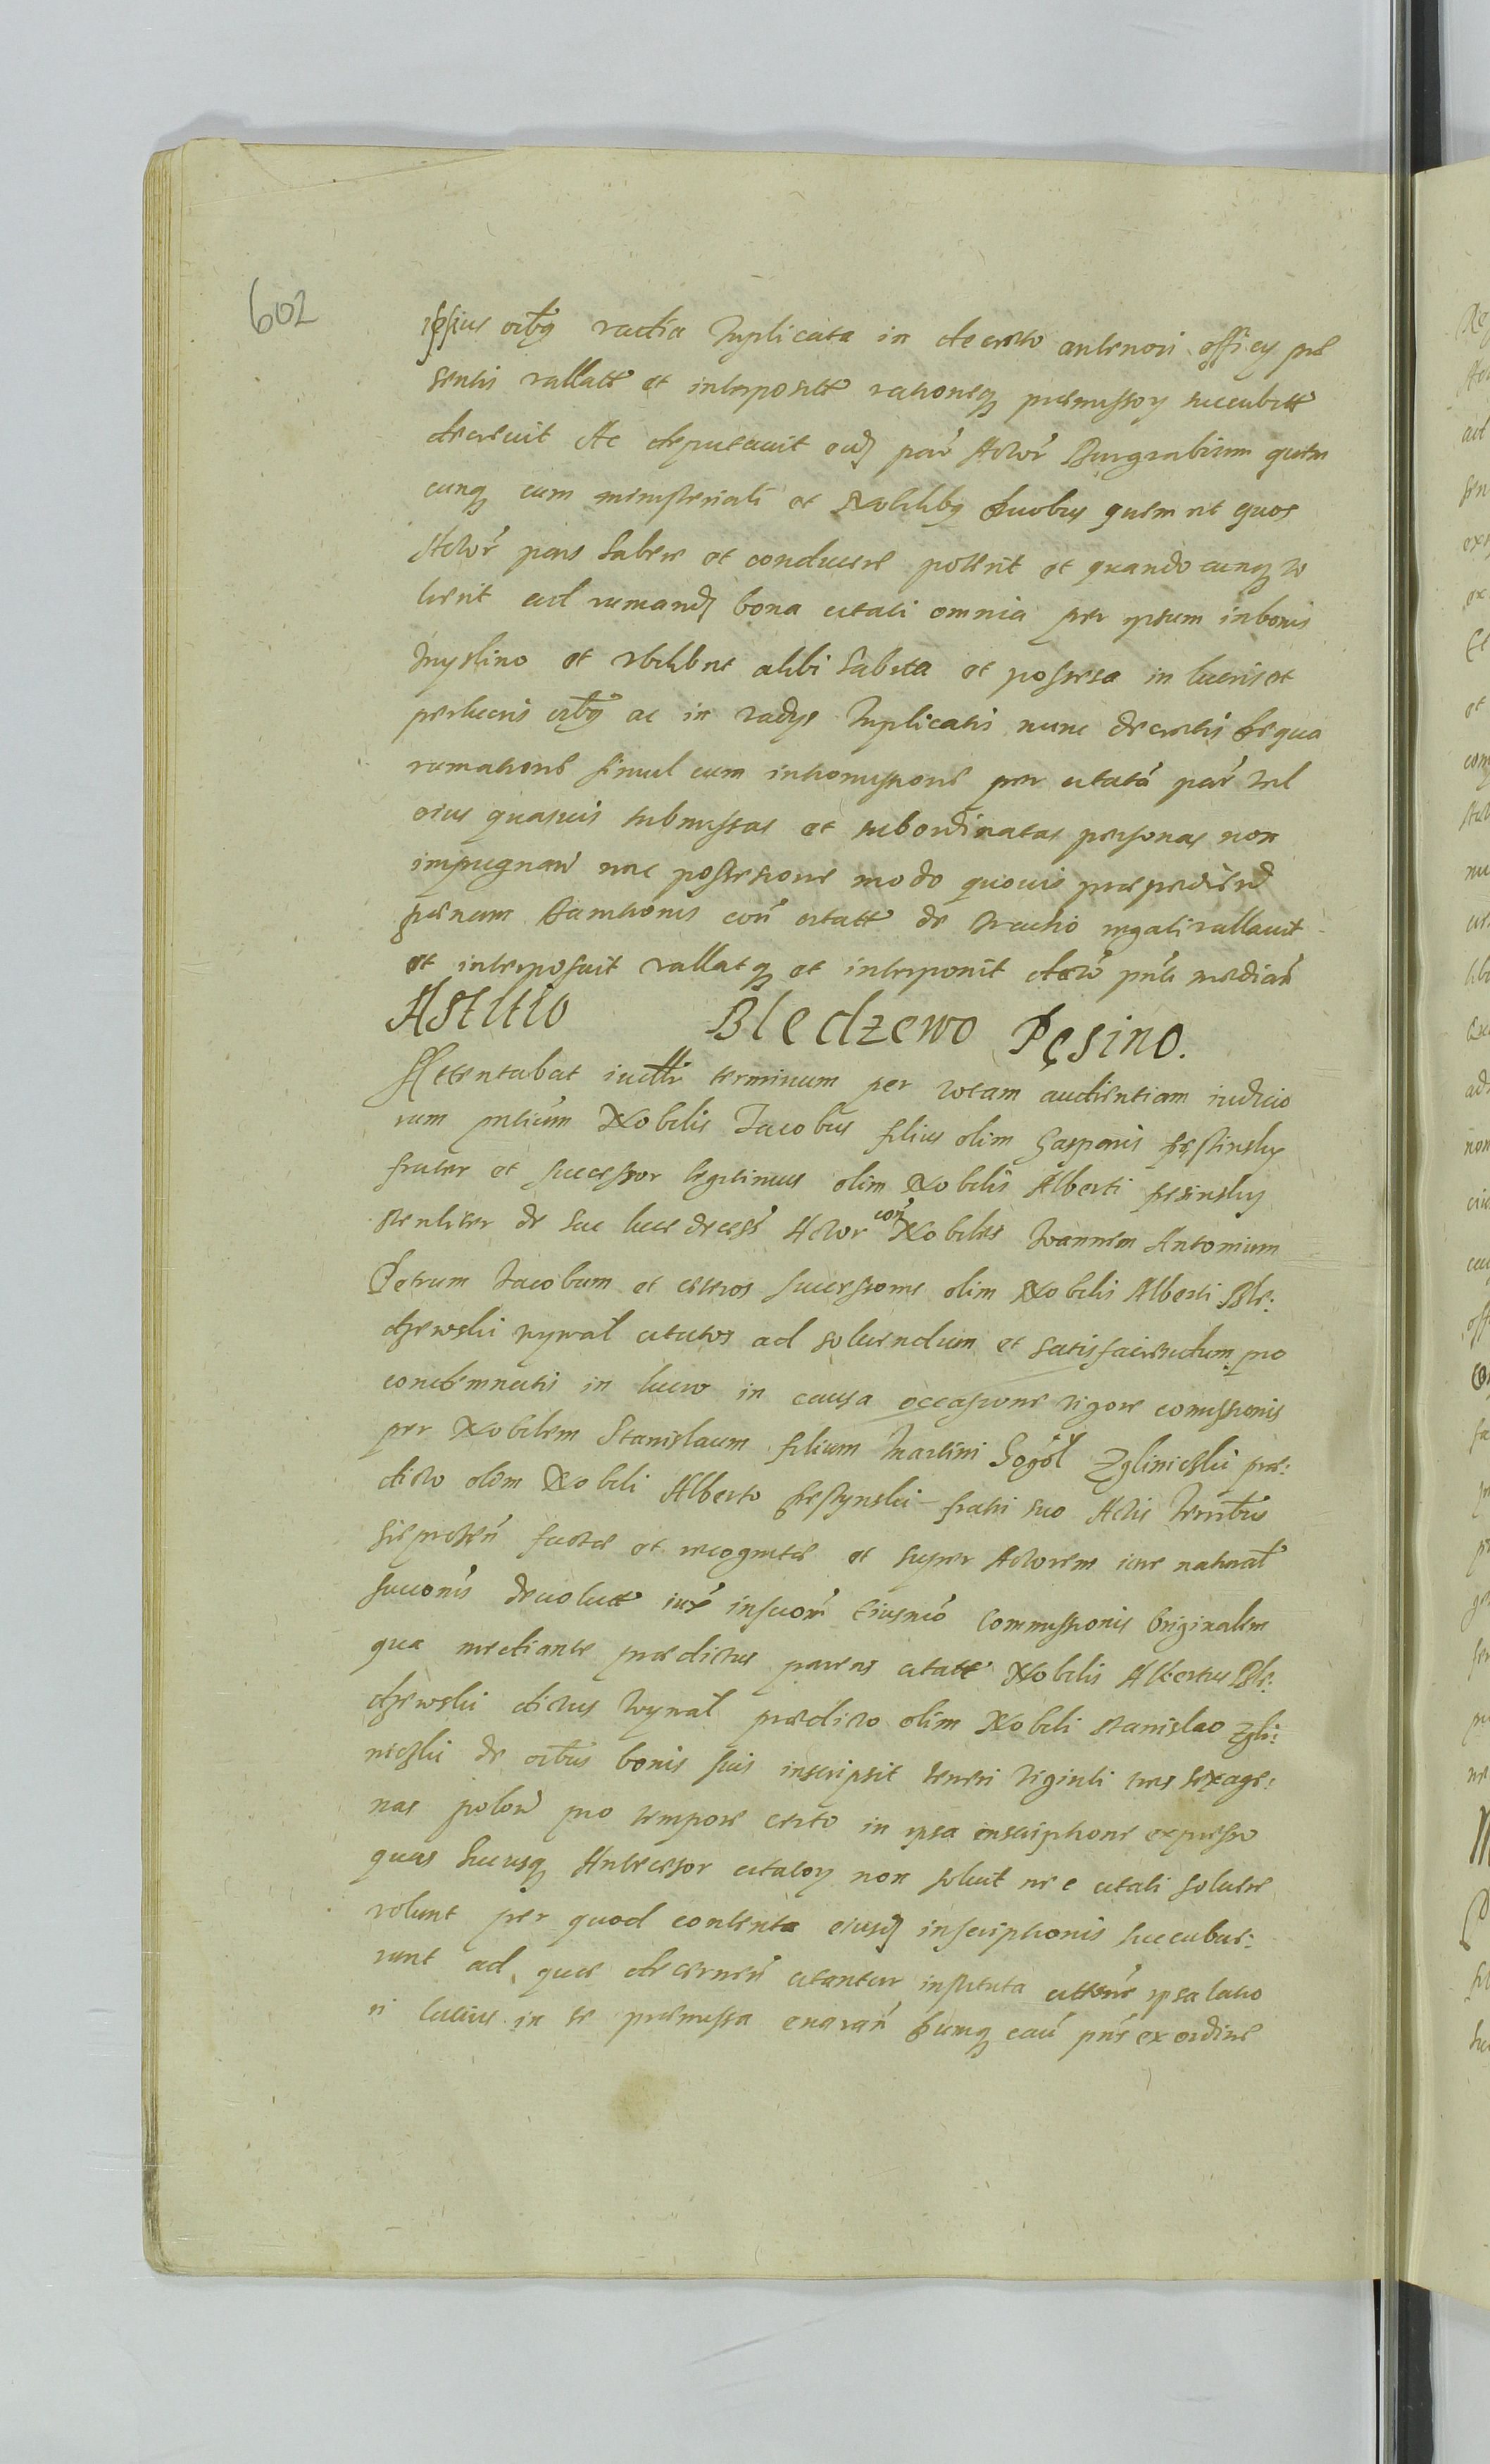 602
ipsius oībq vadia triplicata in decreto anteriori officy præ
sentis vallatt et interposita rationeq præmissorum succubitt
decrevit Ac deputavit eidem par Actor Burgrabium quem
cunq cum ministeriali et Nobilibq duobus quem vt quos
Actor pars habere et conducere poterit et quandocunq vo
luerit ad rumand bona citati omnia per ipsum in bonis
Myslino et vbilibet alibi habita et possessa in lucris et
perlucris oībq ac in vadys triplicatis nunc decretis de qua
rumatione simul cum intromissione per citatam par vel
eius quasuis submissas et subordinatas personas non
impugnand nec possessione modo quouis præpediend
pœnam bannitionis con citatt de bracchio regali vallauit
et interposuit vallatq et interponit decr pnti median
Astitio Bledzewo Pęsino.
Attentabat iudtr terminum per totam audientiam iudicio
rum pntium Nobilis Jacobus filius olim Gasparis Pęssinsky
frater et successor legitimus olim Nobilis Alberti Pesinsky
steriliter de hac luce decess Actor con Nobiles Joannem Antonium
Petrum Jacobum et cæteros successores olim Nobilis Alberti Ble:
dzewski wynal citatos ad soluendum et satisfaciendum pro
condemnatis in lucro in causa occasione vigore comissionis
per Nobilem Stanislaum filium Martini Gogol Zgliniczki præ:
dicto olim Nobili Alberto Pessynski fratri suo Actis terribus
Sieprcen factæ et recognitæ et super Actorem iure naturali
succonis deuolutt iuxt inscron eiusmo commissionis originalem
qua mediante prædictus parens citatt Nobilis Albertus Ble:
dzewski dictus wynal prædicto olim Nobili Stanislao Zgli:
niczki de oībus bonis suis inscripsit teneri viginti tres sexage:
nas polon pro tempore certo in ipsa inscriptione expresso
quas hucusq Antecessor citatorum non soluit nec citati soluere
volunt per quod contenta eiusd inscriptionis succubue:
runt ad quæ decernen citantur instituta citatione ipsa latio
ri latius in se præmissa enarran cumq cau pns ex ordine